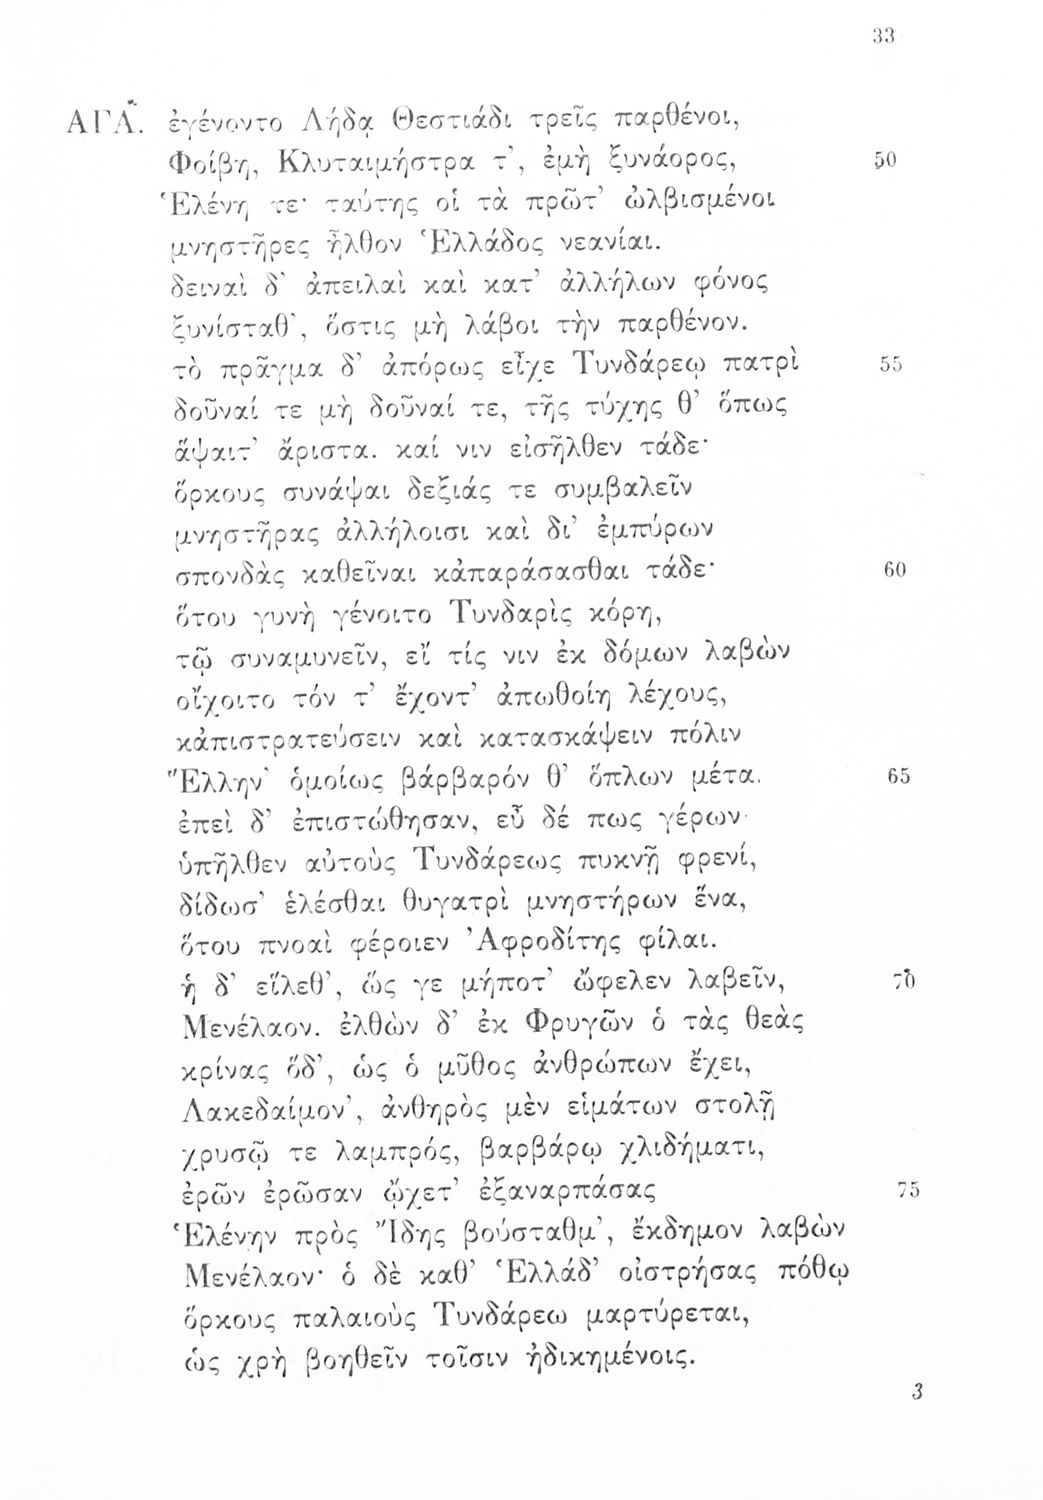 33
ΑΓΑ. ἐγένοντο Λήδᾳ Θεστιάδι τρεῖς παρθένοι,
Φοίβη, Κλυταιμήστρα τ’, ἐμὴ ξυνάορος, 50
Ἑλένη τε· ταύτης οἱ τὰ πρῶτ’ ὠλβισμένοι
μνηστῆρες ἦλθον Ἑλλάδος νεανίαι.
δειναὶ δ’ ἀπειλαὶ καὶ κατ’ ἀλλήλων φόνος
ξυνίσταθ’, ὅστις μὴ λάβοι τὴν παρθένον.
τὸ πρᾶγμα δ’ ἀπόρως εἶχε Τυνδάρεῳ πατρὶ 55
δοῦναί τε μὴ δοῦναί τε, τῆς τύχης θ’ ὅπως
ἅψαιτ’ ἄριστα. καί νιν εἰσῆλθεν τάδε·
ὅρκους συνάψαι δεξιάς τε συμβαλεῖν
μνηστῆρας ἀλλήλοισι καὶ δι’ ἐμπύρων
σπονδὰς καθεῖναι κἀπαράσασθαι τάδε· 60
ὅτου γυνὴ γένοιτο Τυνδαρὶς κόρη,
τῷ συναμυνεῖν, εἴ τίς νιν ἐκ δόμων λαβὼν
οἴχοιτο τόν τ’ ἔχοντ’ ἀπωθοίη λέχους,
κἀπιστρατεύσειν καὶ κατασκάψειν πόλιν
Ἕλλην’ ὁμοίως βάρβαρόν θ’ ὅπλων μέτα. 65
ἐπεὶ δ’ ἐπιστώθησαν, εὖ δέ πως γέρων
ὑπῆλθεν αὐτοὺς Τυνδάρεως πυκνῇ φρενί,
δίδωσ’ ἑλέσθαι θυγατρὶ μνηστήρων ἕνα,
ὅτου πνοαὶ φέροιεν Ἀφροδίτης φίλαι.
ἡ δ’ εἵλεθ’, ὥς γε μήποτ’ ὤφελεν λαβεῖν, 70
Μενέλαον. ἐλθὼν δ’ ἐκ Φρυγῶν ὁ τὰς θεὰς
κρίνας ὅδ’, ὡς ὁ μῦθος ἀνθρώπων ἔχει,
Λακεδαίμον’, ἀνθηρὸς μὲν εἱμάτων στολῇ
χρυσῷ τε λαμπρός, βαρβάρῳ χλιδήματι,
ἐρῶν ἐρῶσαν ᾤχετ’ ἐξαναρπάσας 75
Ἑλένην πρὸς Ἴδης βούσταθμ’, ἔκδημον λαβὼν
Μενέλαον· ὁ δὲ καθ’ Ἑλλάδ’ οἰστρήσας πόθῳ
ὅρκους παλαιοὺς Τυνδάρεω μαρτύρεται,
ὡς χρὴ βοηθεῖν τοῖσιν ἠδικημένοις.
3